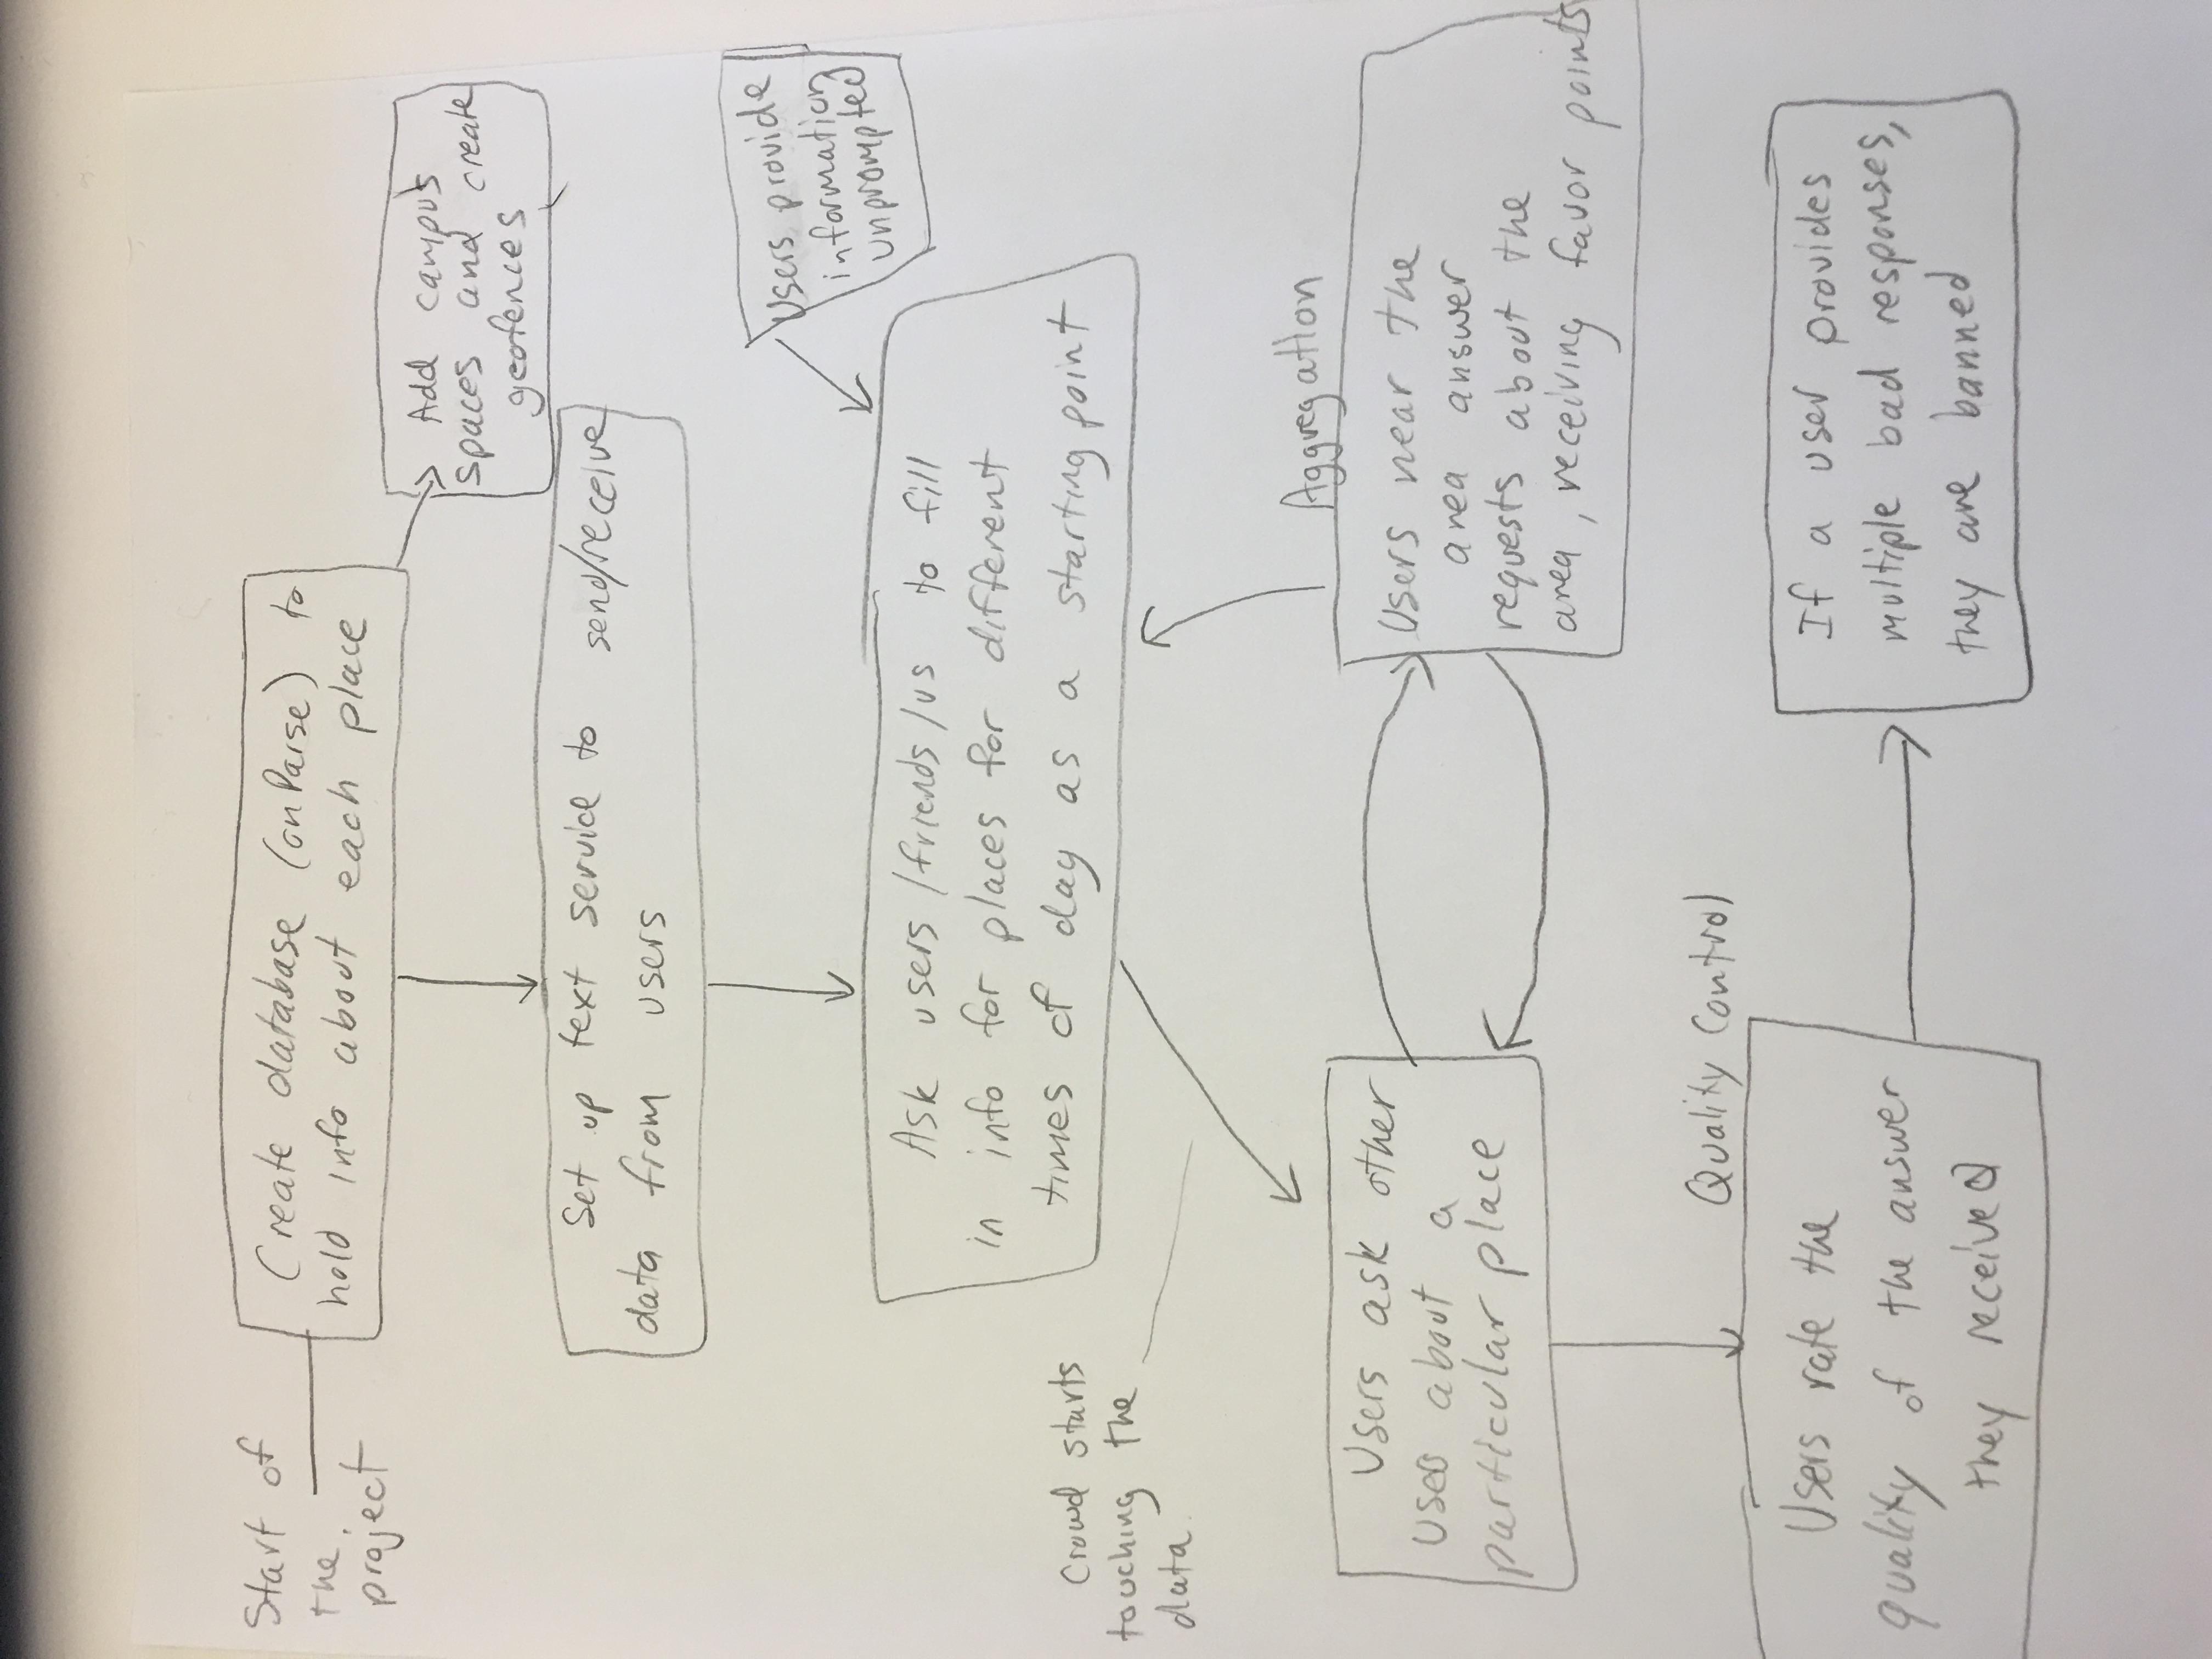 Start of
the
project
Create database (on Parse) to
hold info about each place
Add campus
spaces and create
geofences
Set up text service to send/receive
data from users
Users provide
information
unprompted
Ask users/friends/us to fill
in info for places for different
times of day as a starting point
Crowd starts
touching the
data.
Users ask other
users about a
particular place
Aggregation
Users near the
area answer
requests about the
area, receiving favor points
Quality Control
Users rate the
quality of the answer
they received
If a user provides
multiple bad responses,
they are banned